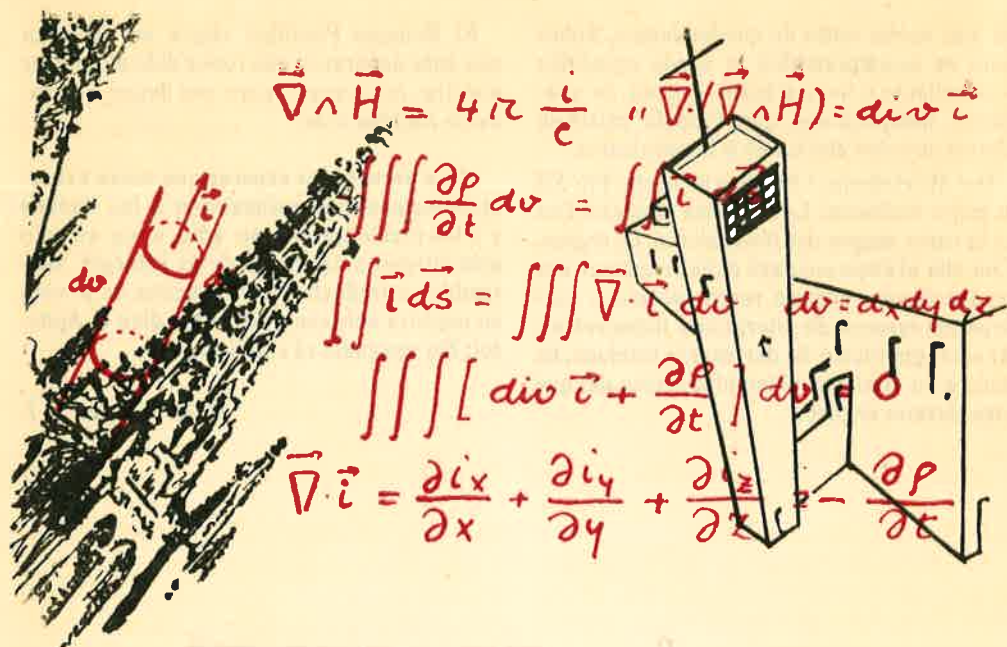 ∇⃗ ∧ H⃗ = 4π i/c " ∇⃗ · ∇⃗ ∧ H⃗) = div i⃗
∭ ∂ρ/∂t dv =
i⃗
dv
∬ i⃗ ds⃗ = ∭ ∇⃗ · i⃗ dv dv = dx dy dz
∭ [ div i⃗ + ∂ρ/∂t ] dv = 0
∇⃗ · i⃗ = ∂ix/∂x + ∂iy/∂y + ∂iz/∂z = − ∂ρ/∂t